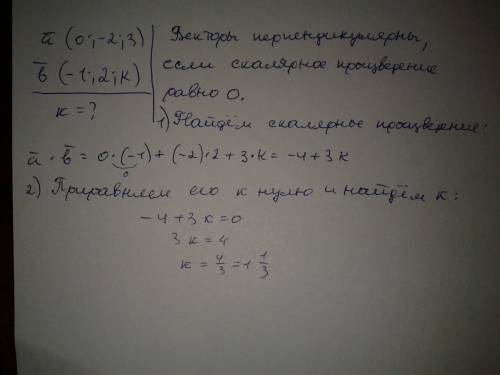 ā (0; -2; 3)
b̄ (-1; 2; к)
к = ?
Векторы перпендикулярны,
если скалярное произведение
равно 0.
1) Найдём скалярное произведение:
ā · b̄ = 0·(-1) + (-2)·2 + 3·к = -4 + 3к
0
2) Приравняем его к нулю и найдём к:
-4 + 3к = 0
3к = 4
к = 4/3 = 1 1/3